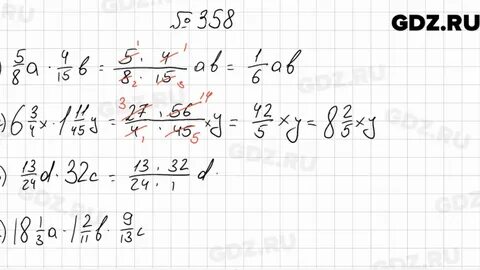 № 358
GDZ.RU
) 5/8 a · 4/15 b = 5 · 4 / 8 · 15 ab = 1/6 ab
) 6 3/4 x · 1 11/45 y = 27 · 56 / 4 · 45 xy = 42/5 xy = 8 2/5 xy
) 13/24 d · 32c = 13 · 32 / 24 · 1 d ·
) 18 1/3 a · 1 2/11 b · 9/13 c